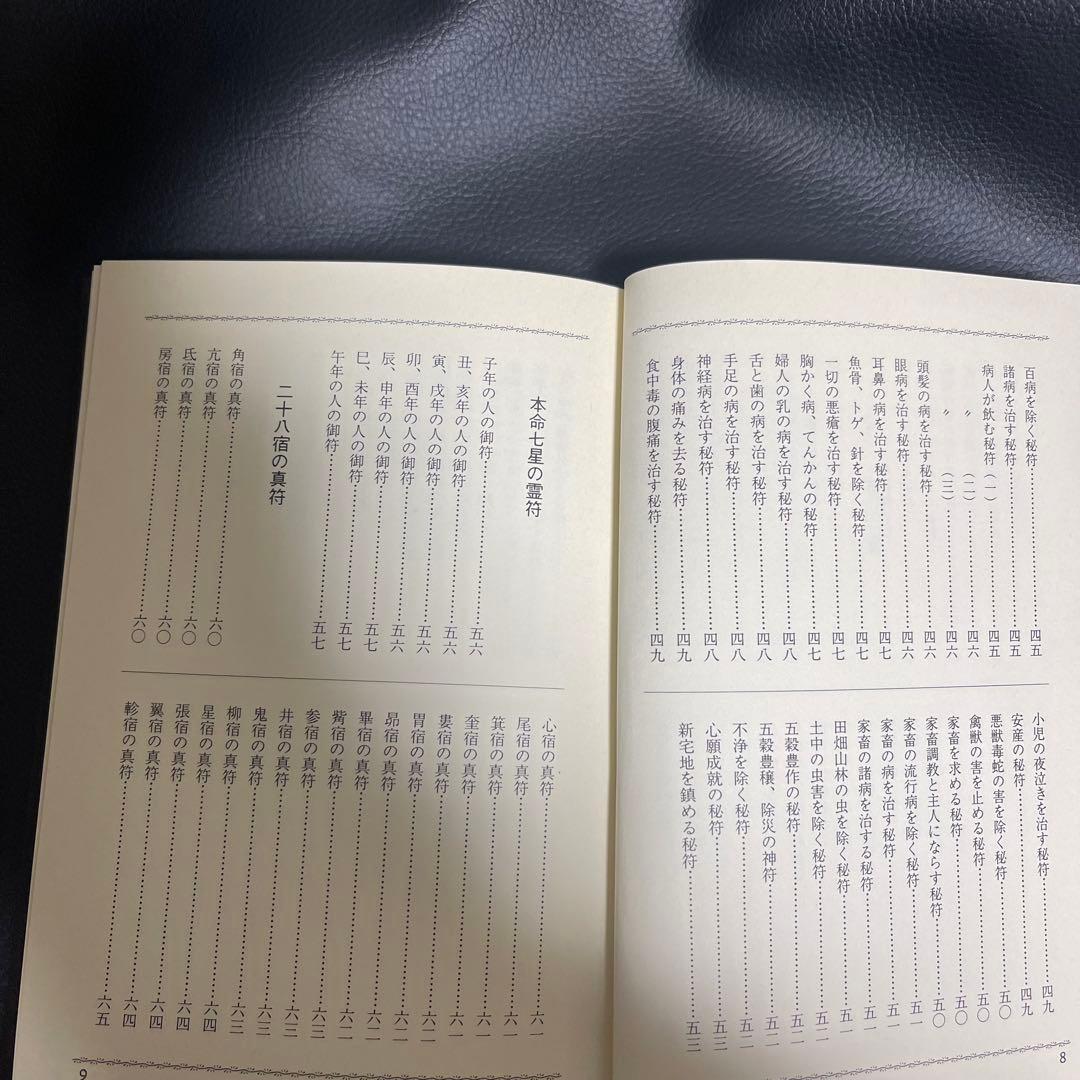 百病を除く秘符……………四五
諸病を治す秘符……………四五
病人が飲む秘符（一）……………四五
〃（二）……………四六
〃（三）……………四六
頭髪の病を治す秘符……………四六
眼病を治す秘符……………四六
耳鼻の病を治す秘符……………四七
魚骨、トゲ、針を除く秘符……………四七
一切の悪瘡を治す秘符……………四七
胸かく病、てんかんの秘符……………四七
婦人の乳の病を治す秘符……………四八
舌と歯の病を治す秘符……………四八
手足の病を治す秘符……………四八
神経病を治す秘符……………四八
身体の痛みを去る秘符……………四九
食中毒の腹痛を治す秘符……………四九
小児の夜泣きを治す秘符……………四九
安産の秘符……………四九
悪獣毒蛇の害を除く秘符……………五〇
禽獣の害を止める秘符……………五〇
家畜を求める秘符……………五〇
家畜調教と主人にならす秘符……………五〇
家畜の流行病を除く秘符……………五一
家畜の病を治す秘符……………五一
家畜の諸病を治する秘符……………五一
田畑山林の虫を除く秘符……………五一
土中の虫害を除く秘符……………五二
五穀豊作の秘符……………五二
五穀豊穣、除災の神符……………五二
不浄を除く秘符……………五二
心願成就の秘符……………五三
新宅地を鎮める秘符……………五三
8
本命七星の霊符
子年の人の御符……………五六
丑、亥年の人の御符……………五六
寅、戌年の人の御符……………五六
卯、酉年の人の御符……………五六
辰、申年の人の御符……………五七
巳、未年の人の御符……………五七
午年の人の御符……………五七
二十八宿の真符
角宿の真符……………六〇
亢宿の真符……………六〇
氐宿の真符……………六〇
房宿の真符……………六〇
心宿の真符……………六一
尾宿の真符……………六一
箕宿の真符……………六一
奎宿の真符……………六一
婁宿の真符……………六二
胃宿の真符……………六二
昴宿の真符……………六二
畢宿の真符……………六二
觜宿の真符……………六三
参宿の真符……………六三
井宿の真符……………六三
鬼宿の真符……………六三
柳宿の真符……………六四
星宿の真符……………六四
張宿の真符……………六四
翼宿の真符……………六四
軫宿の真符……………六五
9